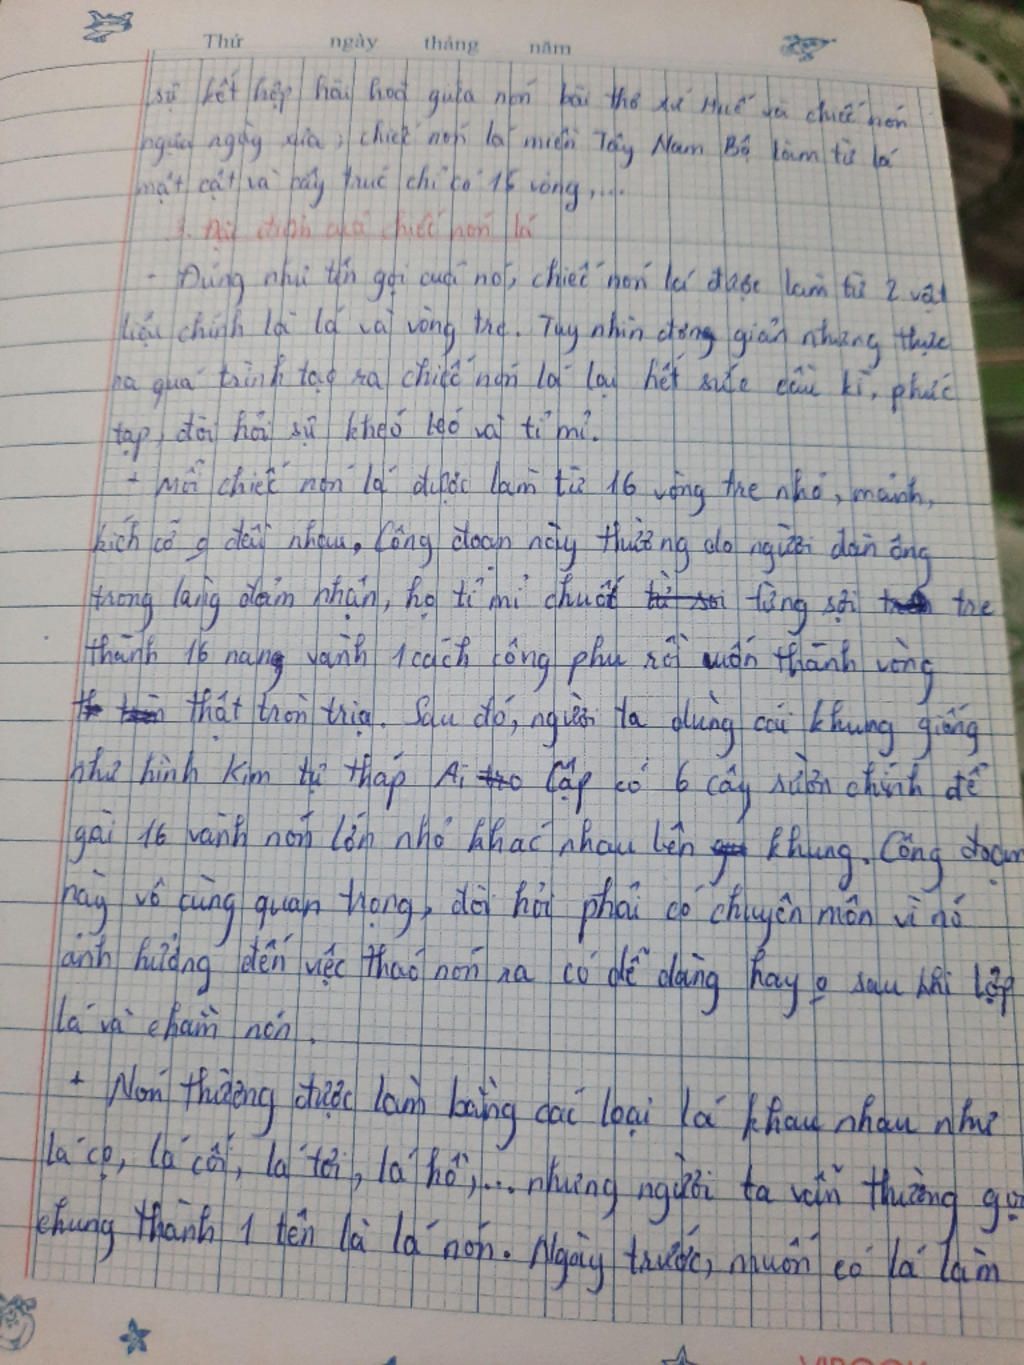 Thứ ngày tháng năm
sự kết hợp hài hoà giữa nón bài thơ xứ Huế và chiếc nón
ngựa ngày xưa, chiếc nón lá miền Tây Nam Bộ làm từ lá
mật cật và bẩy trúc chỉ có 15 vòng,...
3. Đặc của chiếc nón lá
- Đúng như tên gọi của nó, chiếc nón lá được làm từ 2 vật
liệu chính là lá và vòng tre. Tuy nhìn đơng giản nhưng thực
ra quá trình tạo ra chiếc nón lá lại hết sức cầu kì, phức
tạp, đòi hỏi sự khéo léo và tỉ mỉ.
+ Mỗi chiếc nón lá được làm từ 16 vòng tre nhỏ, mảnh,
kích cỡ o đều nhau. Công đoạn này thường do người đàn ông
trong làng đảm nhận, họ tỉ mỉ chuốt từng sợi tre
thành 16 nang vành 1 cách công phu rồi uốn thành vòng
thật tròn trịa. Sau đó, người ta dùng cái khung giống
như hình Kim tự tháp Ai Cập có 6 cây sườn chính để
gài 16 vành nón lớn nhỏ khác nhau lên khung. Công đoạn
này vô cùng quan trọng, đòi hỏi phải có chuyên môn vì nó
ảnh hưởng đến việc tháo nón ra có dễ dàng hay o sau khi lợp
lá và chằm nón.
+ Nón thường được làm bằng các loại lá khau nhau như
lá cọ, lá cối, lá tơi, lá hồ,... nhưng người ta vẫn thường gọi
chung thành 1 tên là lá nón. Ngày trước, muốn có lá làm